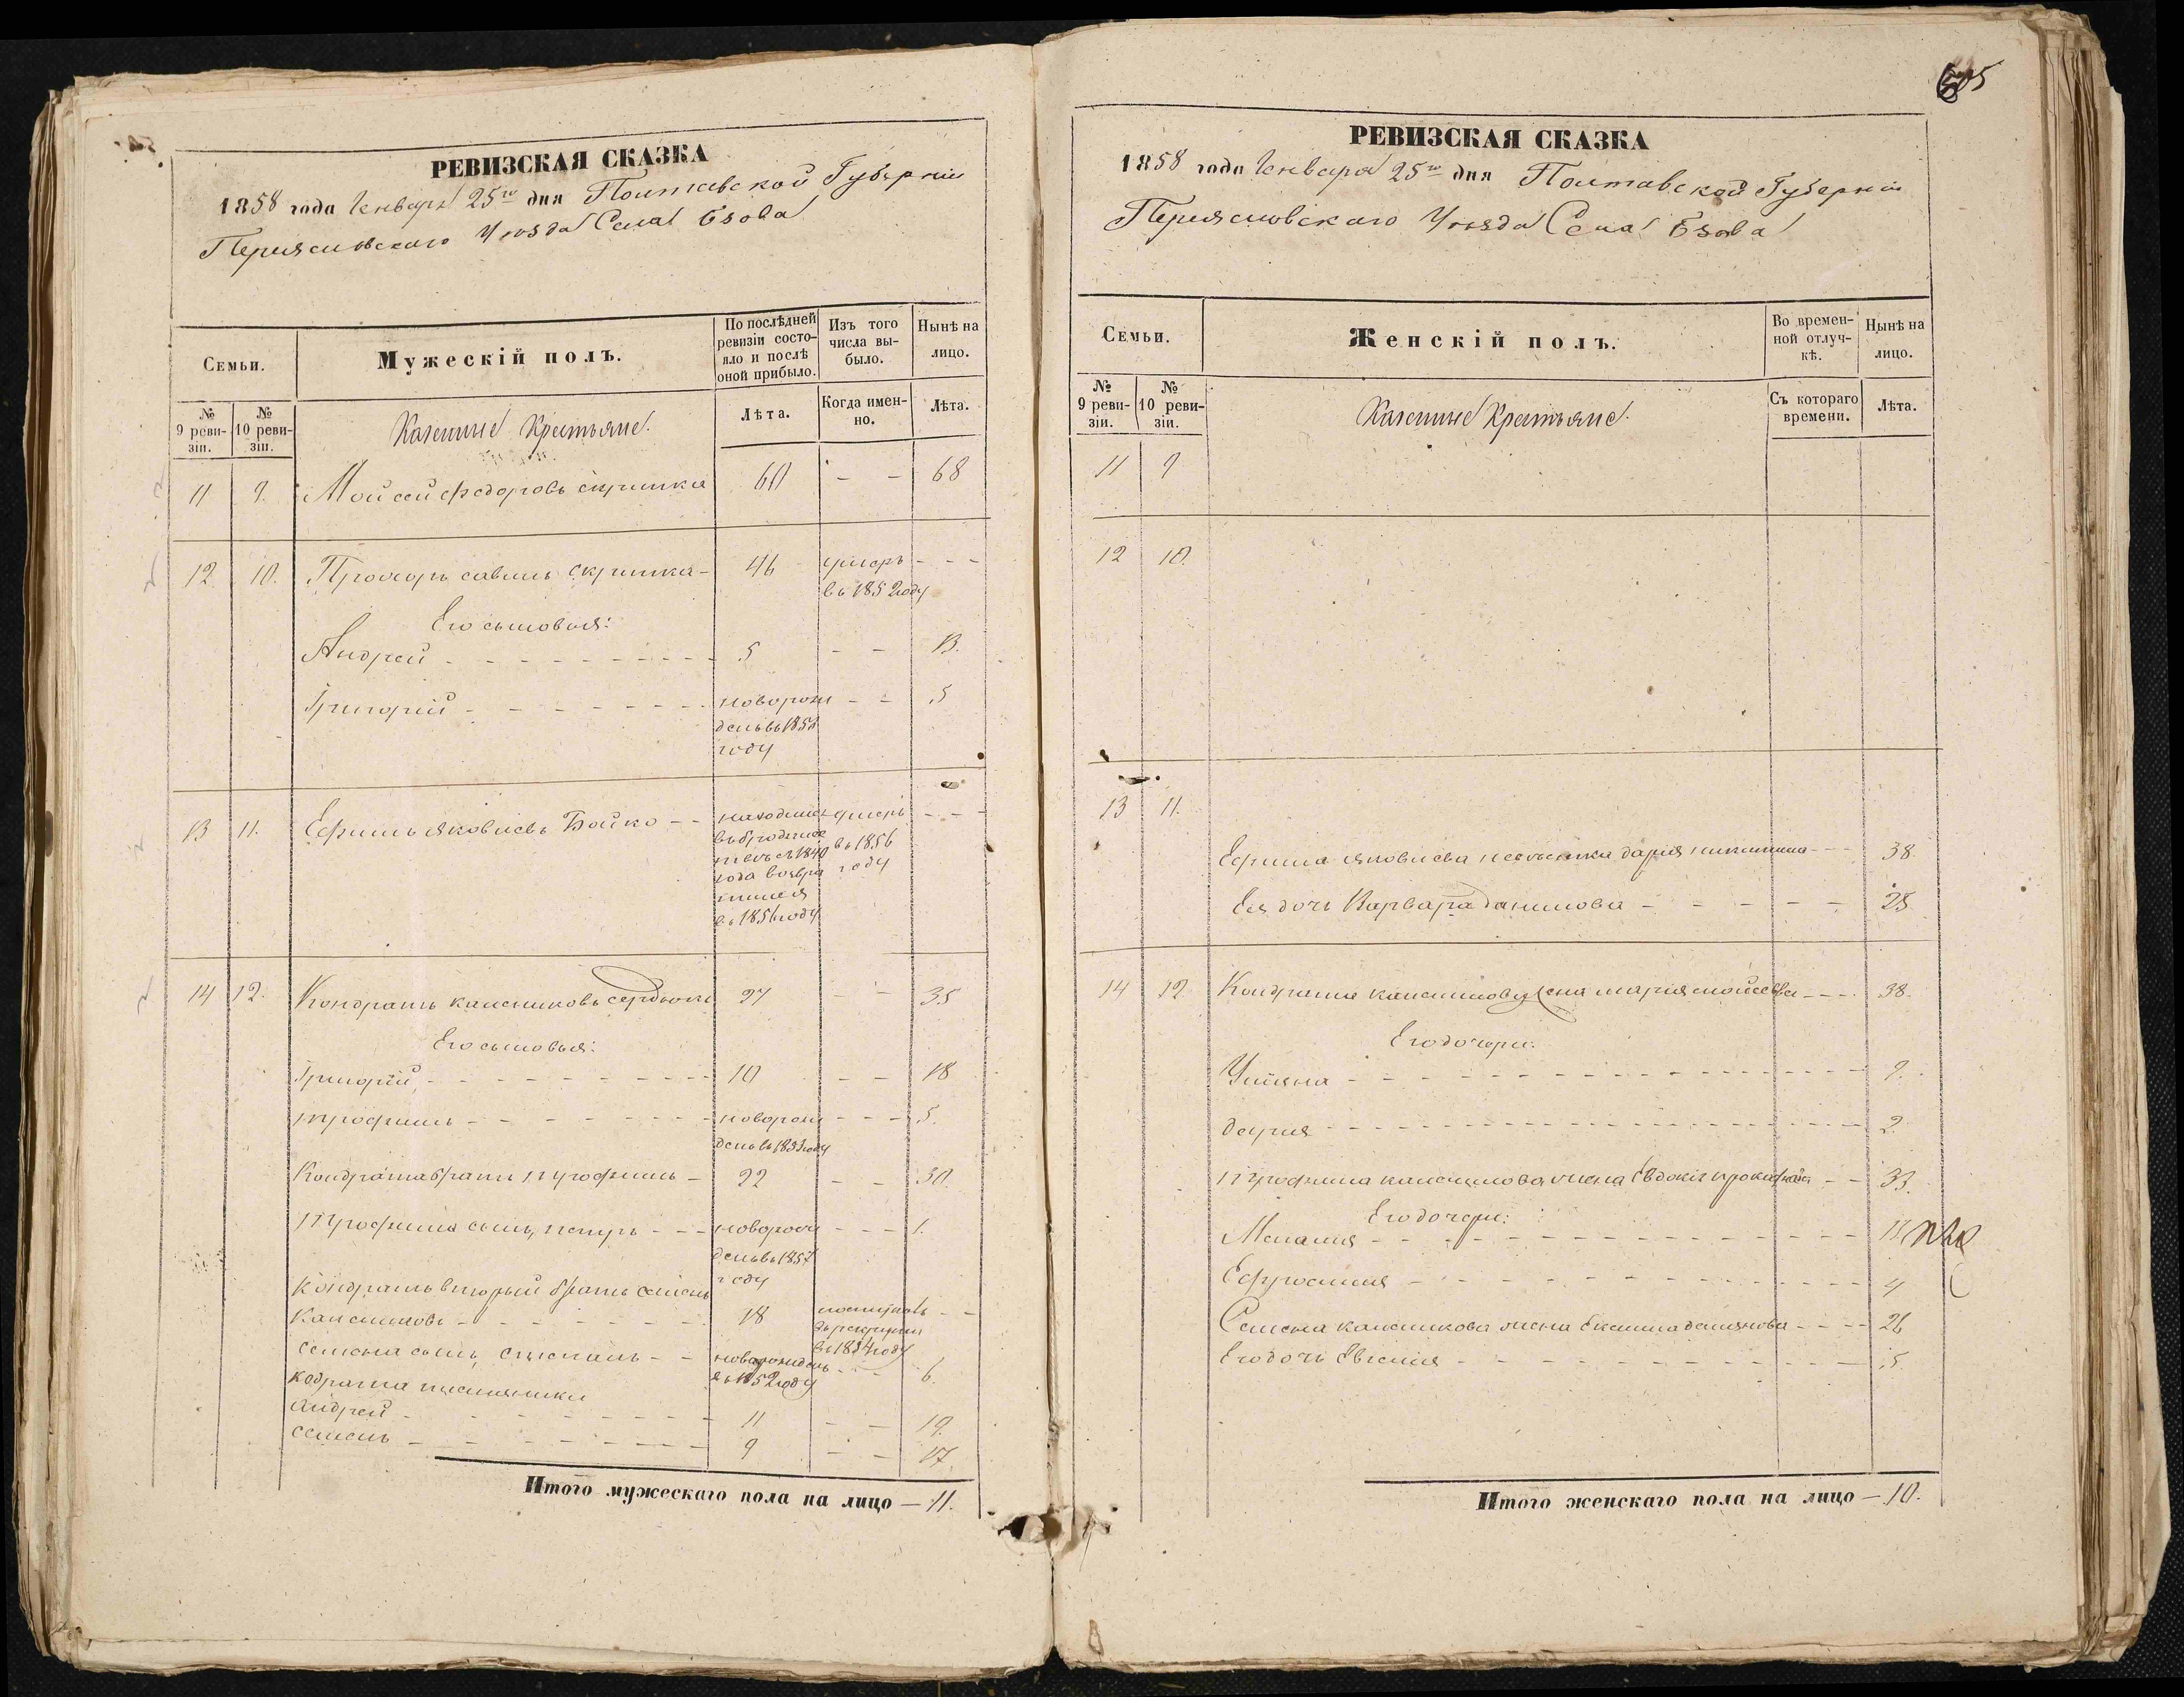 РЕВИЗСКАЯ СКАЗКА
1858 года Генваря 25го дня Полтавской Губерніи
Переясловскаго Уѣзда Села Бзова
Семьи.
Мужескій полъ.
По послѣдней ревизіи состояло и послѣ оной прибыло.
Изъ того числа выбыло.
Нынѣ на лицо.
№ 9 ревизіи.
№ 10 ревизіи.
Казенные Крестьяне.
Лѣта.
Когда именно.
Лѣта.
11 9. Мойсей Федоровъ скрипка 60 – – 68
12 10. Прохоръ савинъ скрипка – 46 умеръ – – –
въ 1852 году
Его сыновья:
Андрей – – – 5 – – 13.
Григорій – – – новорож – – 5
денъ въ 1853
году
13 11. Ефимъ яковлевъ Бойко – – находился умеръ – – –
въ бродяжес
тве съ 1840 въ 1856
года возвра году
тился
въ 1856 году
14 12. Кондратъ калениковъ сердюкъ 27 – – 35
Его сыновья:
Григорій – – – 10 – – 18
трофимъ – – – новорож – – – 5.
денъ въ 1853 году
Кондрата братъ трофимъ – 22 – – 30.
трофима сынъ, петръ – – – новорож – – – 1.
денъ въ 1857
году
Кондратъ вторый братъ семенъ
Калениковъ – – – 18 поступилъ – –
въ рекруты
въ 1854 году
семена сынъ, степанъ – – новорожденъ – – – 6.
въ 1852 году
кодрата племянники
Андрей – – – 11 – – 19.
семенъ – – – 9 – – 17.
Итого мужескаго пола на лицо – 11.
605
РЕВИЗСКАЯ СКАЗКА
1858 года Генваря 25го дня Полтавской Губерніи
Переясловскаго Уѣзда Села Бзова
Семьи.
Женскій полъ.
Во временной отлучкѣ.
Нынѣ на лицо.
№ 9 ревизіи.
№ 10 ревизіи.
Казенные Крестьяне.
Съ котораго времени.
Лѣта.
11 9
12 10.
13 11.
Ефима яковлева невѣстка дарія никитина – – – 38.
Ея дочь Варвара данилова – – – – – 25
14 12 Кондрата каленикова жена марія мойсеева – – – 38.
Его дочери:
Уліяна – – – 9.
дарія – – – 2.
трофима каленикова жена Евдокія – – 33.
Его дочери:
Меланія – – – 11
Ефросинія – – – 4
Семена каленикова жена Екатерина демянова – – – 26
Его дочь Евгенія – – – 5.
Итого женскаго пола на лицо – 10.